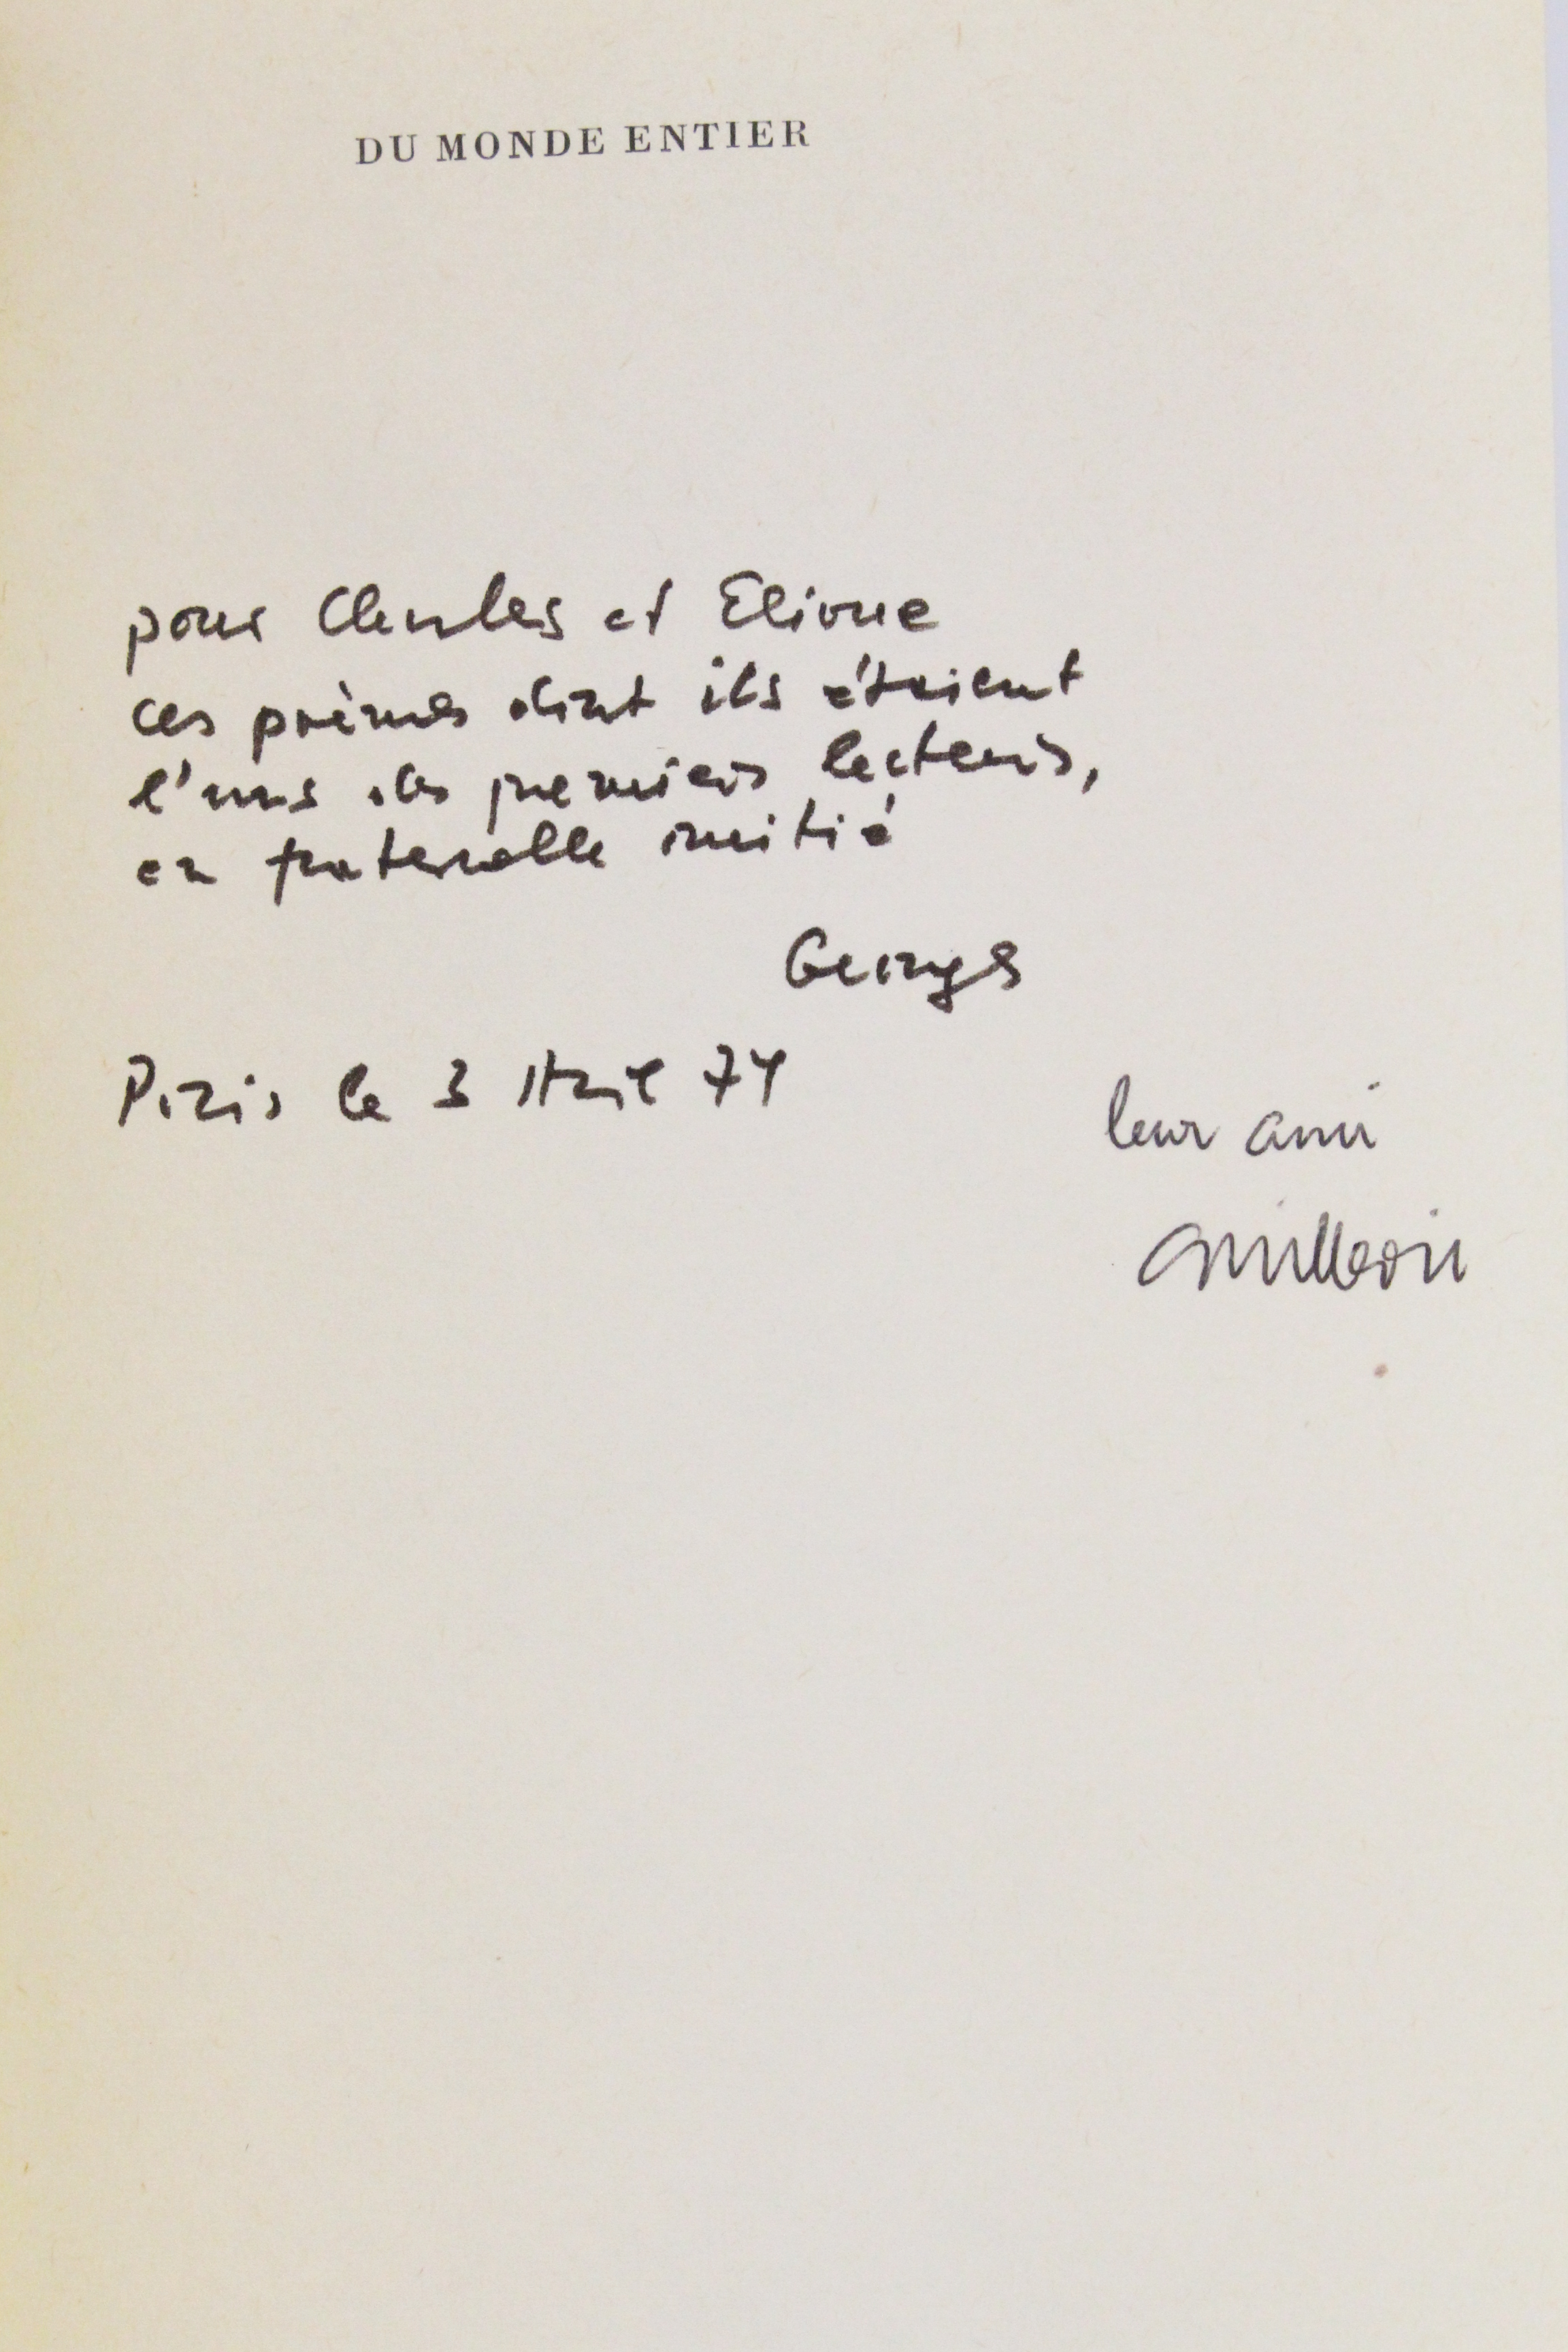 DU MONDE ENTIER
pour Charles et Eliane
ces poèmes dont ils étaient
l'uns des premiers lecteurs,
en fraternelle amitié
Georges
Paris le 3 Avril 74
leur ami
Guillevic